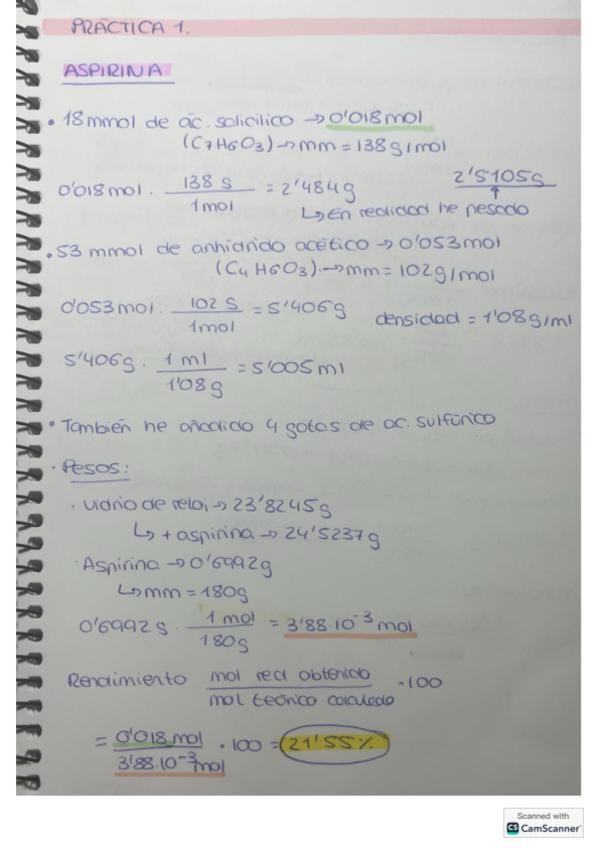 PRÁCTICA 1.
ASPIRINA
• 18 mmol de ác. salicilico → 0'018 mol
(C7H6O3) → mm = 138 g/mol
0'018 mol · 138 g / 1 mol = 2'484 g 2'5105 g
↳ En realidad he pesado
• 53 mmol de anhidrido acético → 0'053 mol
(C4H6O3) → mm = 102 g/mol
0'053 mol · 102 g / 1 mol = 5'406 g densidad = 1'08 g/ml
5'406 g · 1 ml / 1'08 g = 5'005 ml
• También he añadido 4 gotas de ac. sulfúrico
· Pesos:
· Vidrio de reloj → 23'8245 g
↳ + aspirina → 24'5237 g
· Aspirina → 0'6992 g
↳ mm = 180 g
0'6992 g · 1 mol / 180 g = 3'88·10⁻³ mol
Rendimiento mol real obtenido / mol teórico calculado · 100
= 0'018 mol / 3'88·10⁻³ mol · 100 = 21'55%
Scanned with
CS CamScanner